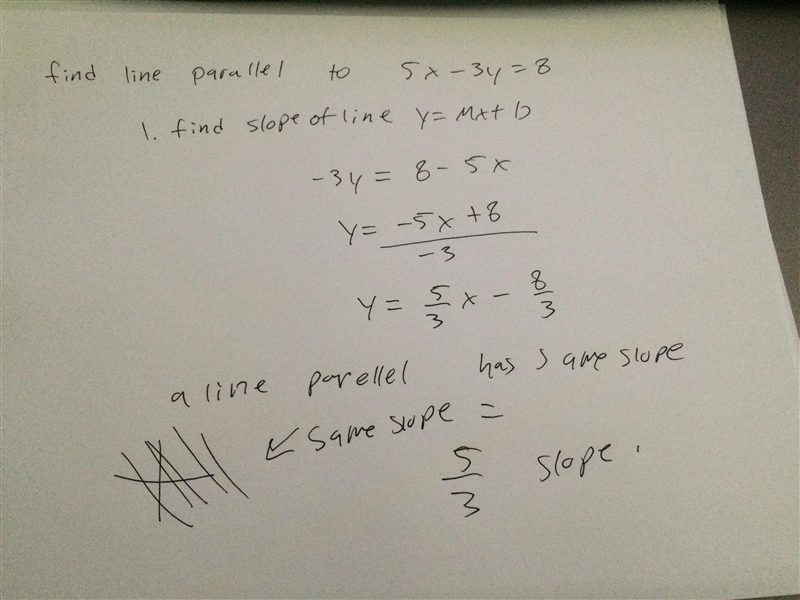 find line parallel to 5x - 3y = 8
1. find slope of line y = mx + b
-3y = 8 - 5x
y = -5x + 8 / -3
y = 5/3 x - 8/3
a line parellel has same slope
same slope =
5/3 slope.